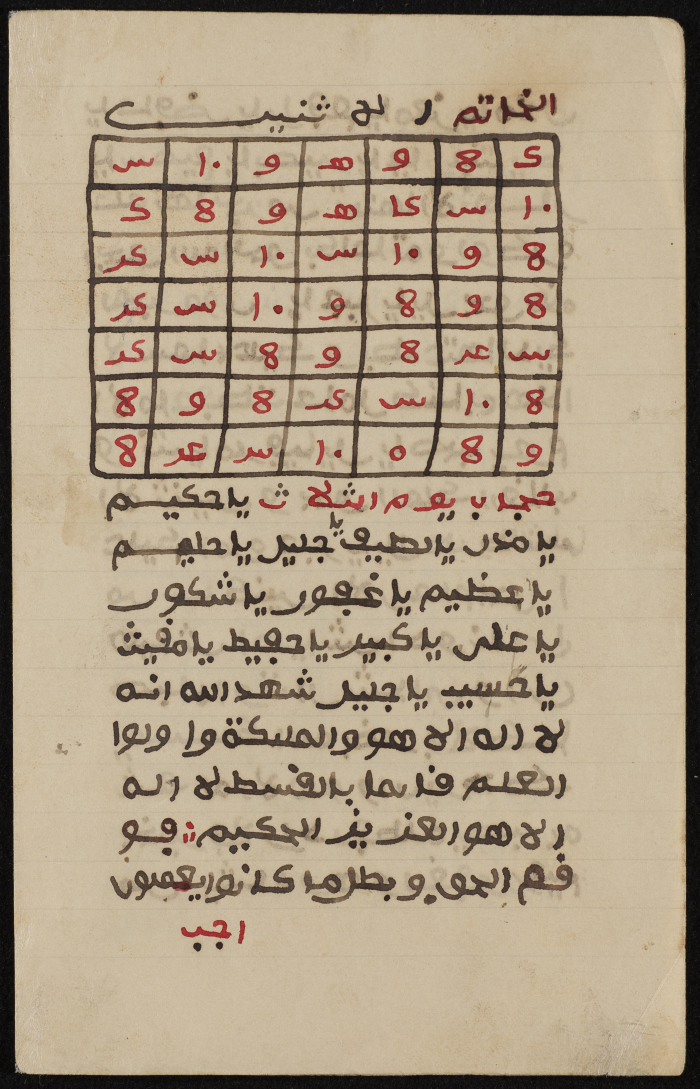 الخاتم الاثنين
ک 8 و ھ و ١٠ س
١٠ س کا ھ و 8 ک
8 و ١٠ س ١٠ س کد
8 و 8 و ١٠ س کد
س عد 8 و 8 س کد
8 ١٠ س کد 8 و 8
و 8 ه ١٠ س عد 8
حجاب يوم الثلاث يا حكيم
يا لطيف يا جليل يا حليم
يا عظيم يا غفور يا شكور
يا على يا كبير يا حفيظ يا مقيت
يا حسيب يا جليل شهد الله انه
لا اله الا هو والملىكة وا ولوا
العلم قاىما بالقسط لا اله
الا هو العزيز الحكيم فو
قع الحق وبطل ما كانوا يعملون
اجب